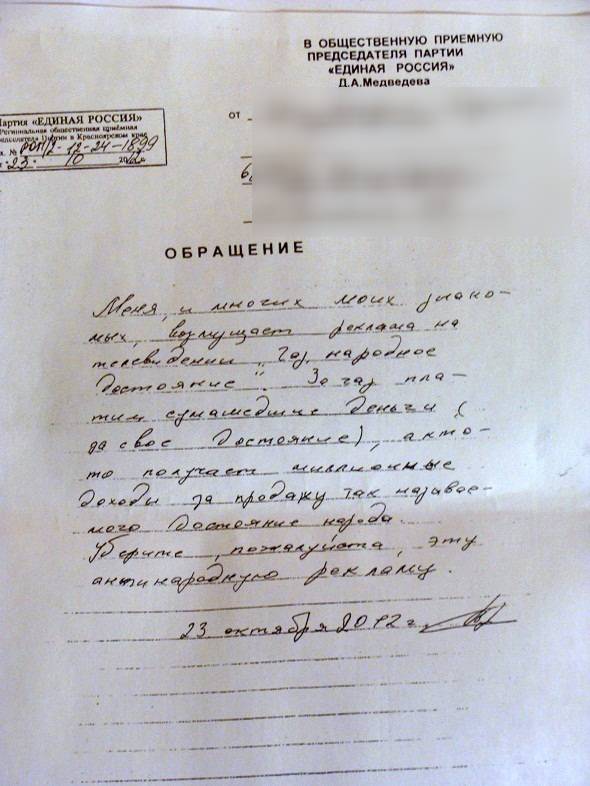 В ОБЩЕСТВЕННУЮ ПРИЕМНУЮ
ПРЕДСЕДАТЕЛЯ ПАРТИИ
«ЕДИНАЯ РОССИЯ»
Д.А.Медведева
Партия «ЕДИНАЯ РОССИЯ»
Региональная общественная приёмная
Председателя Партии в Красноярском крае
№ РОП/2-12-24-1899
23. 10 2012
от
6
ОБРАЩЕНИЕ
Меня, и многих моих знако-
мых, возмущает реклама на
телевидении „Газ, народное
Достояние". За газ пла-
тим сумашедшие деньги (
за свое Достояние), а кто-
то получает миллионные
доходы за продажу так называе-
мого Достояние народа.
Уберите, пожалуйста, эту
антинародную рекламу.
23 октября 2012 г